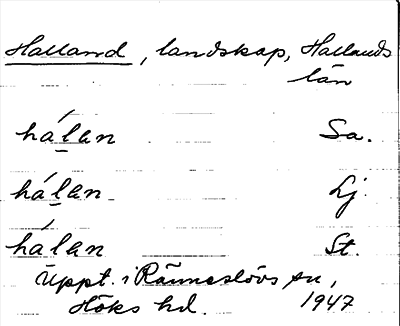 Halland, landskap, Hallands
län
hálan Sa.
hálan Lj.
hálan St.
Uppt. i Ränneslövs sn,
Höks hd. 1947